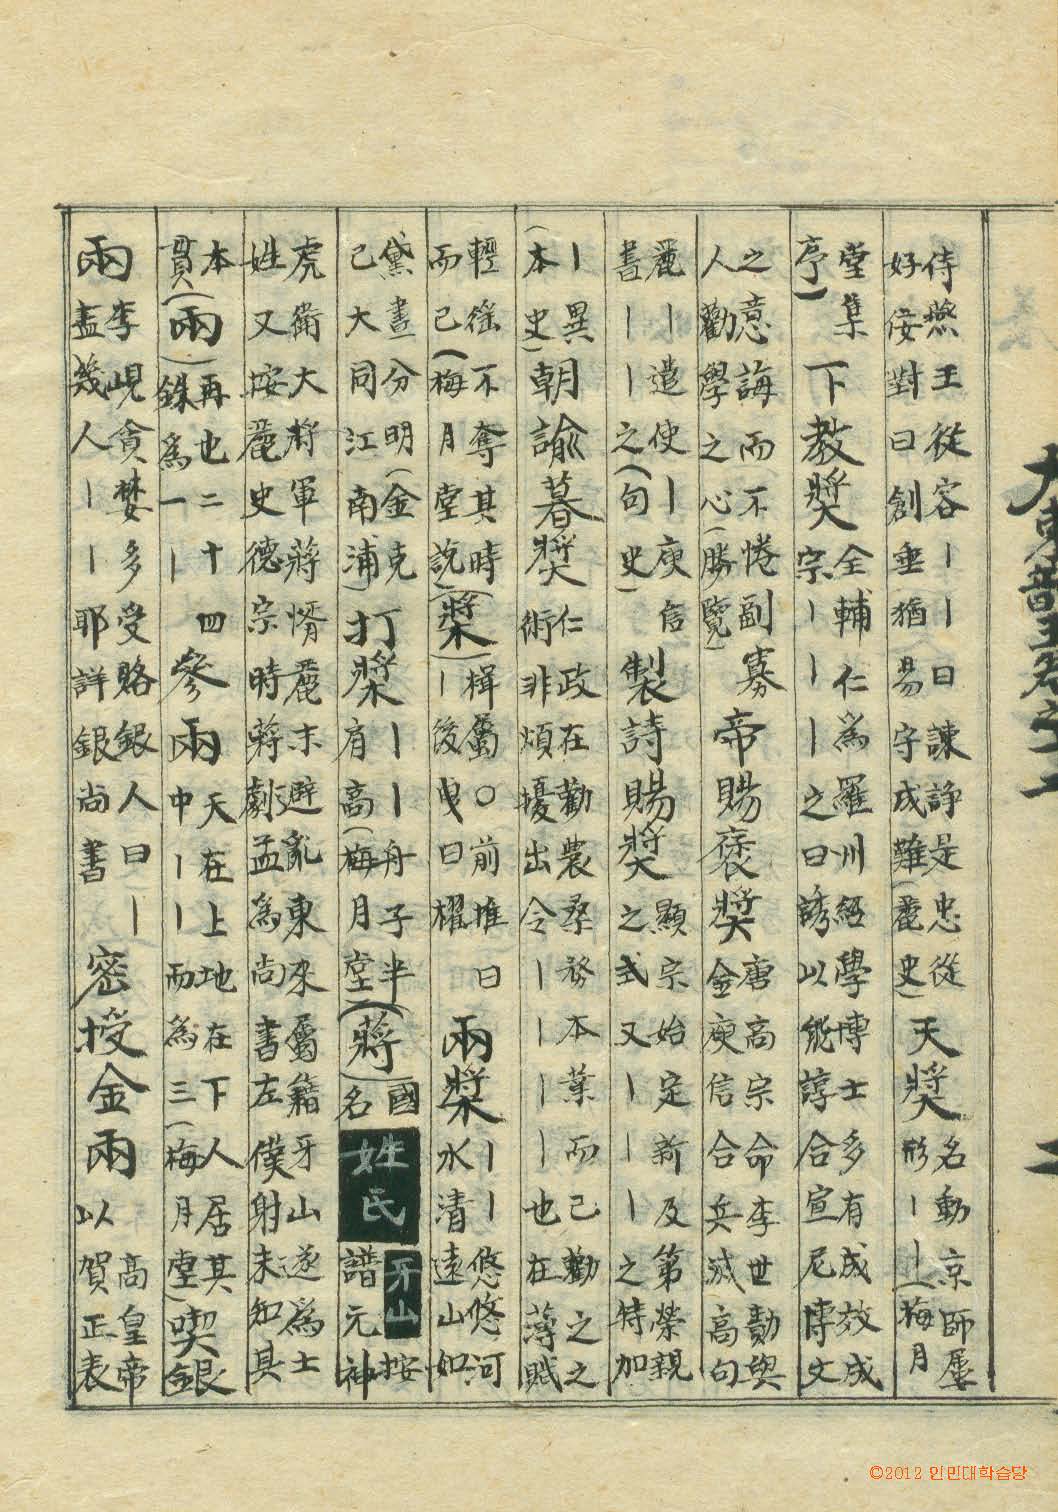 侍燕王從容丨丨曰諫諍是忠從
好侫對曰創垂猶易守成難(麗史)天奬名動京師屢
形丨丨(梅月
堂集
序)下教奬全輔仁爲羅州經學博士多有成效成
宗丨丨丨之曰誘以能諄合宣尼博文
之意誨而不惓副寡
人勸學之心(勝覽)帝賜褒奬唐高宗命李世勣與
金庾信合兵滅高句
麗丨遣使丨庾信
書丨丨丨之(句史)製詩賜奬顯宗始定新及第榮親
之式又丨丨丨之特加
丨異
(本史)朝諭暮奬仁政在勸農桑務本業而已勸之之
術非煩擾出令丨丨丨丨也在薄賦
輕徭不奪其時
而已(梅月堂說)(槳)楫屬○前推曰
丨後曳曰櫂兩槳丨丨悠悠河
水清遠山如
黛畵分明(金克
己大同江南浦)打槳丨丨舟子半
肩高(梅月堂)(蔣)國
名姓氏牙山按
譜元神
虎衛大將軍蔣惰麗末避亂東來屬籍牙山遂爲士
姓又按麗史德宗時蔣劇孟爲尚書左僕射未知其
本
貫(兩)再也二十四
銖爲一丨參兩天在上地在下人居其
中丨丨而爲三(梅月堂)喫銀
兩李峴貪婪多受賂銀人曰丨
盖幾人丨丨耶詳銀尚書密授金兩高皇帝
以賀正表
大東韻玉 二
©2012 인민대학습당